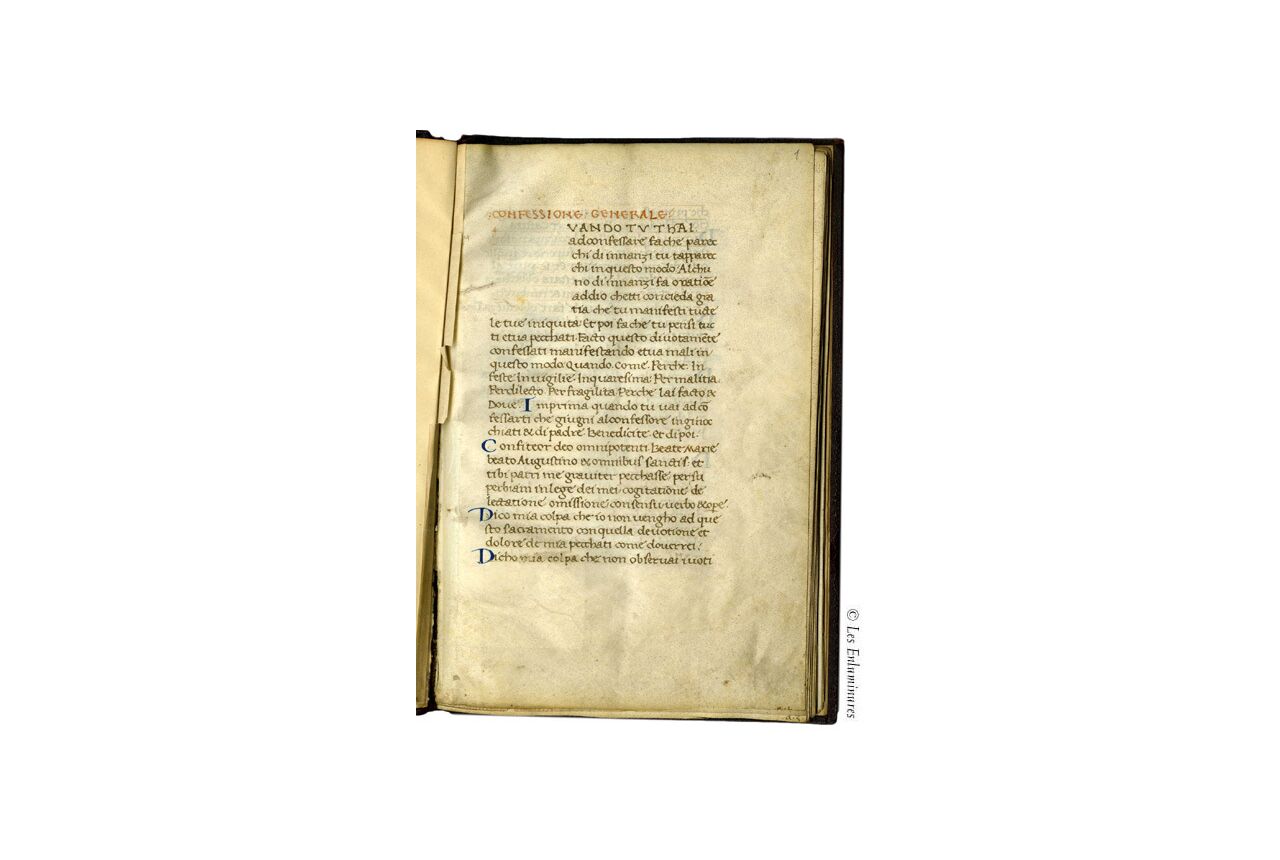 1
:CONFESSIONE GENERALE
VANDO TV THAI
ad confessare fa che parec
chi di innanzi tu tapparec
chi in questo modo. Alchu
no di innanzi fa oratiōe
addio chetti coricieda gra
tia che tu manifesti tucte
le tue iniquita. Et poi fa che tu pensi tuc
ti etua pecchati. Facto questo diuotamēte
confessati manifestando etua mali in
questo modo. Quando. Come. Perche. In
feste. In uigilie. In quaresima. Per malitia.
Per dilecto. Per fragilita. Perche lai facto &
Doue. Imprima quando tu uai ad cō
fessarti che giugni al confessore inginoc
chiati & di padre. Benedicite. Et di poi.
Confiteor deo omnipotenti. Beate Marie
beato Augustino & omnibus sanctis. et
tibi patri me grauiter pecchasse per su
perbiam in lege dei mei cogitatione de
lectatione omissione consensu uerbo & ope
Dico mia colpa che io non uengho ad que
sto sacramento con quella deuotione et
dolore de mia pecchati come douerrei.
Dicho mia colpa che non obseruai i uoti
© Les Enluminures